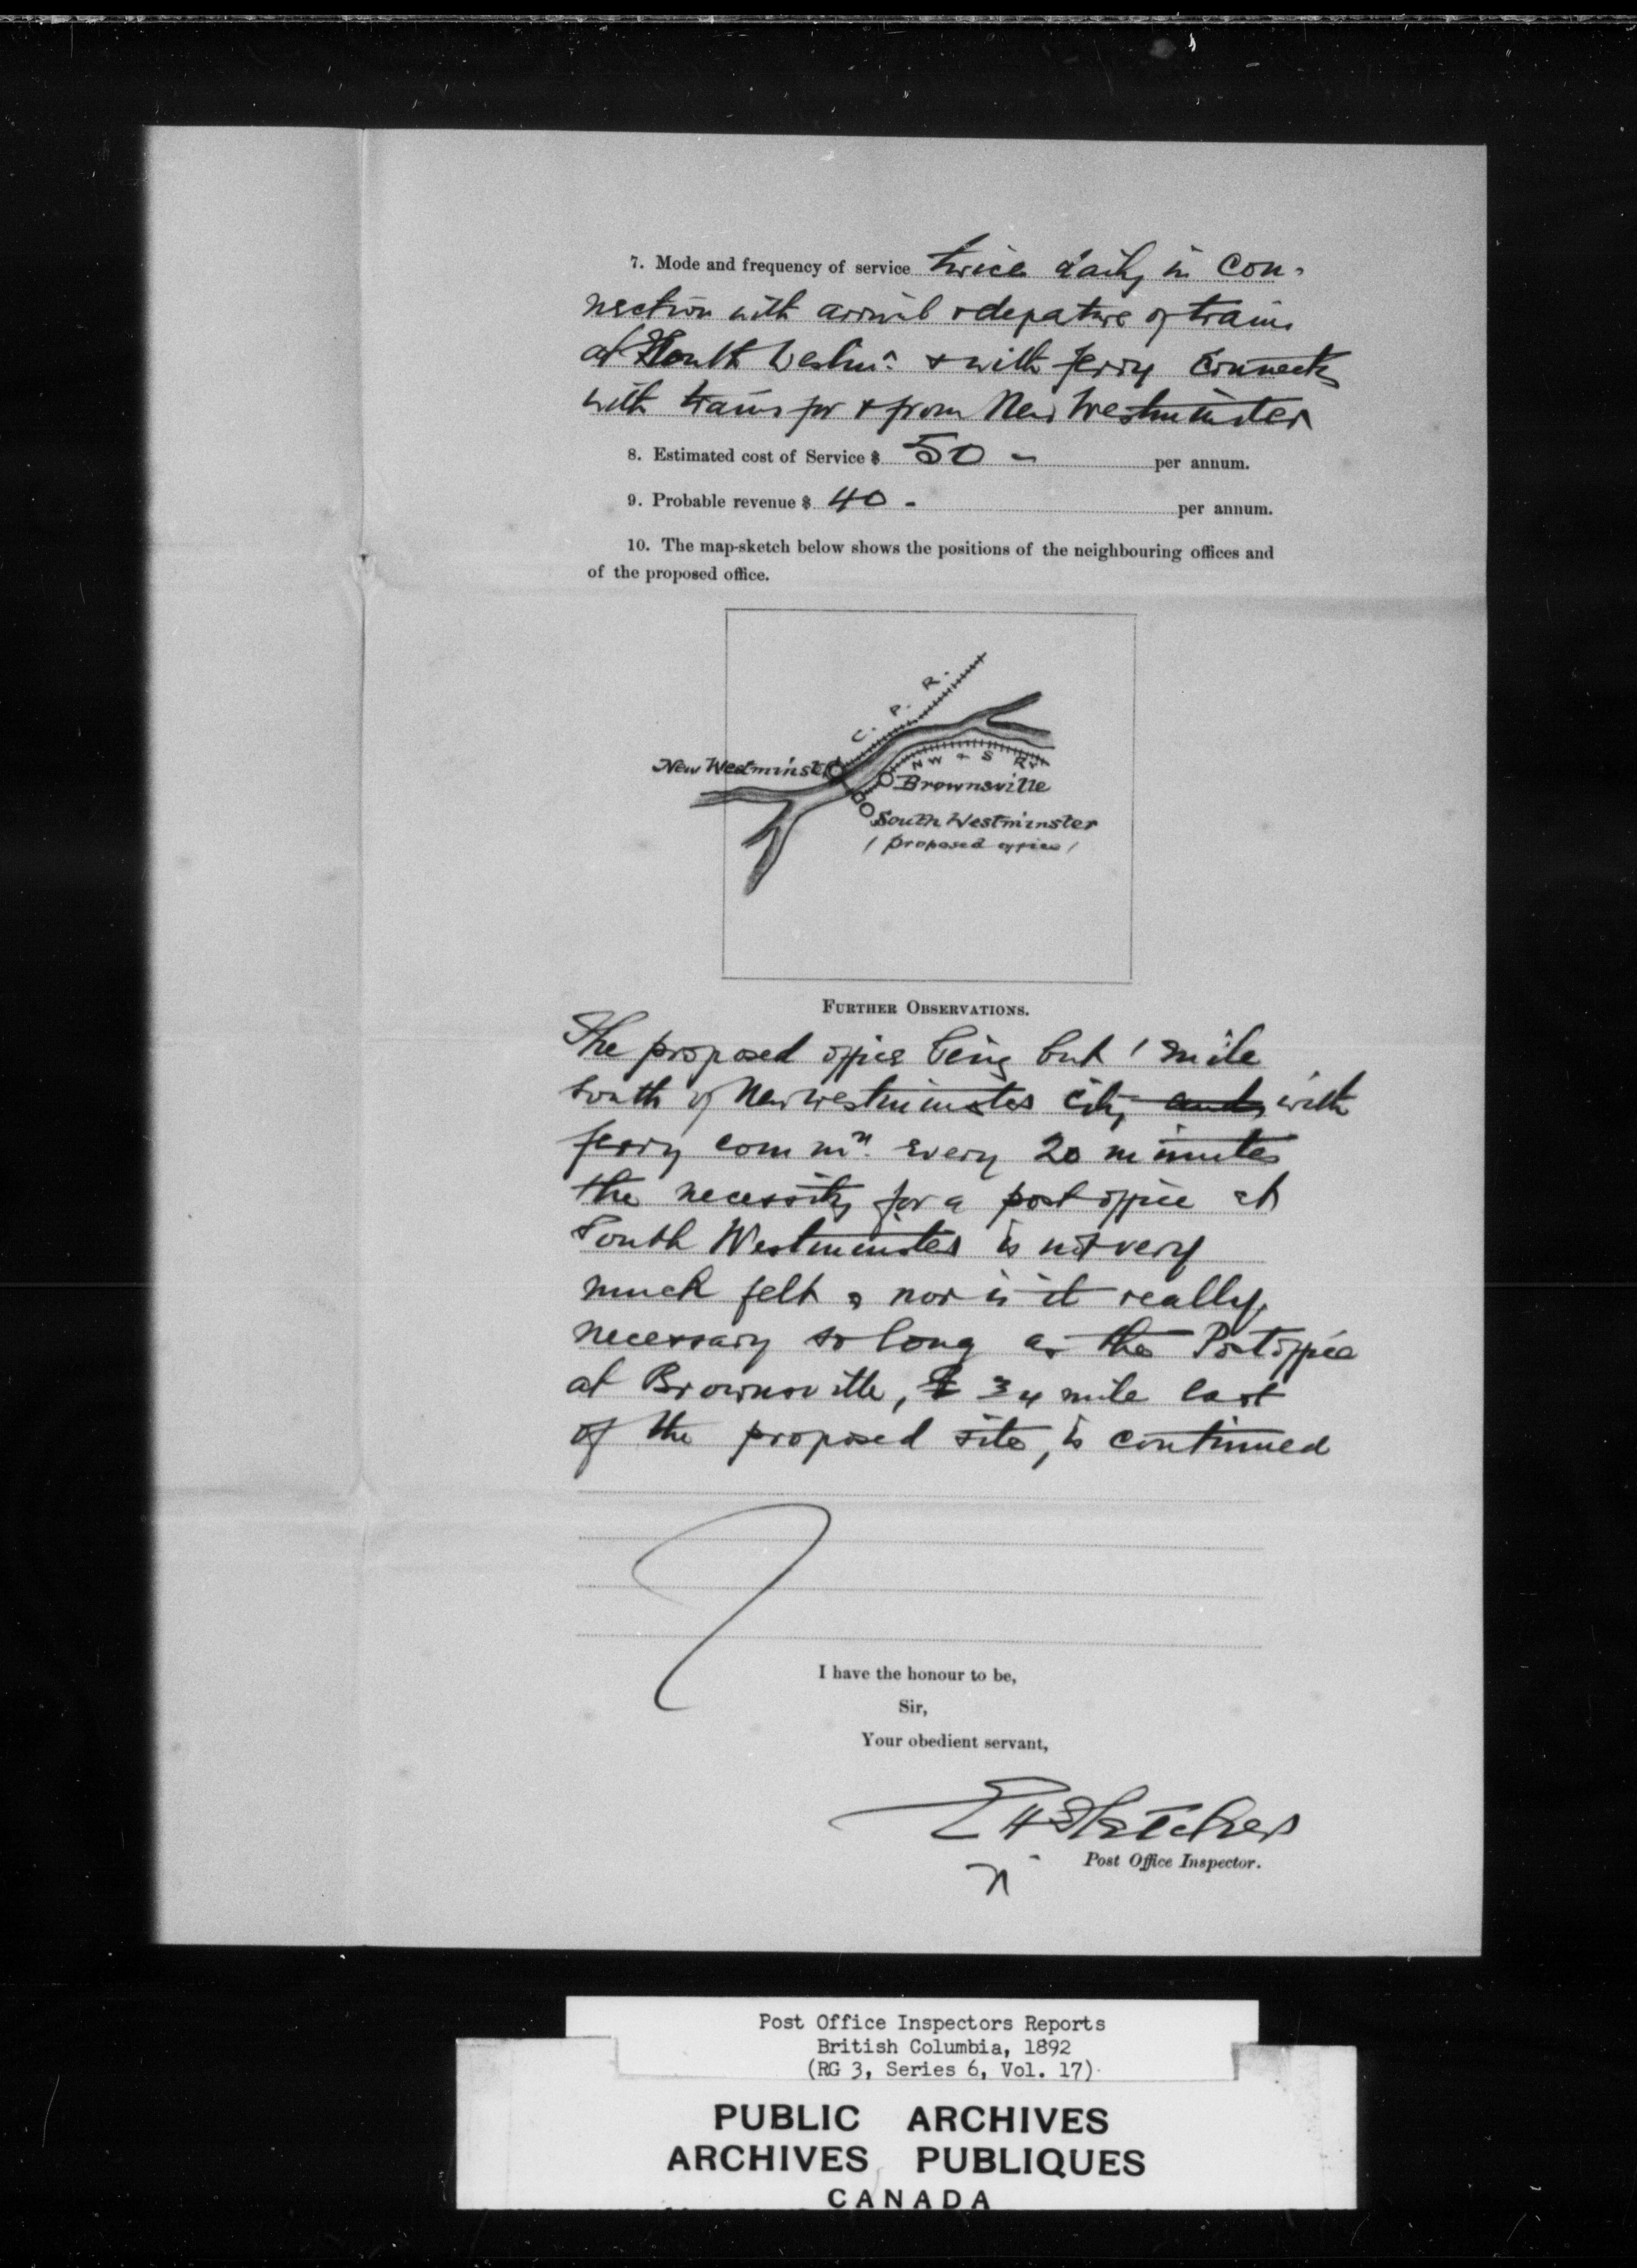 7. Mode and frequency of service twice daily in con-
nection with arrival & depature of trains
at South Westmr. & with ferry connects
with trains for & from New Westminster
8. Estimated cost of Service $ 50 - per annum.
9. Probable revenue $ 40 - per annum.
10. The map-sketch below shows the positions of the neighbouring offices and
of the proposed office.
C. P. R.
N W & S Ry
New Westminster
Brownsville
South Westminster
( proposed office )
FURTHER OBSERVATIONS.
The proposed office being but 1 mile
south of New Westminster City and with
ferry commn. every 20 minutes
the necessity for a post office at
South Westminster is not very
much felt, nor is it really
necessary so long as the Post office
at Brownsville, 3/4 mile East
of the proposed site, is continued
I have the honour to be,
Sir,
Your obedient servant,
E H Fletcher
Post Office Inspector.
Post Office Inspectors Reports
British Columbia, 1892
(RG 3, Series 6, Vol. 17)
PUBLIC ARCHIVES
ARCHIVES PUBLIQUES
CANADA